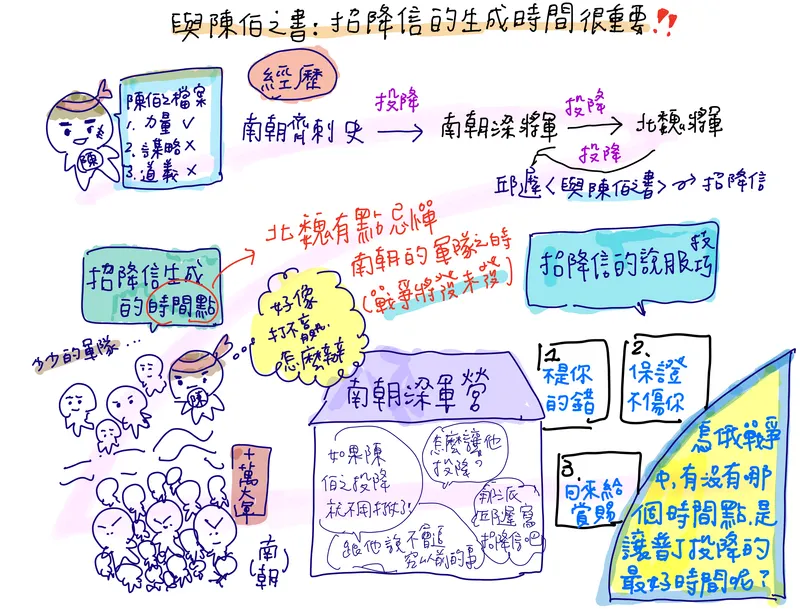 與陳伯之書：招降信的生成時間很重要!!
經歷
陳伯之檔案
1. 力量 ✓
2. 謀略 ✗
3. 道義 ✗
陳
南朝齊刺史
投降
南朝梁將軍
投降
北魏將軍
投降
邱遲<與陳伯之書>
招降信
招降信生成
的時間點
北魏有點忌憚
南朝的軍隊之時
(戰爭將發未發)
招降信的說服技巧
少少的軍隊…
陳
好像
打不贏
怎麼辦
十萬大軍
(南朝)
南朝梁軍營
如果陳
伯之投降
就不用打仗了!
怎麼讓他
投降?
邱遲寫
招降信吧
跟他說不會追
究以前的事
1.
不是你
的錯
2.
保證
不傷你
3.
回來給
賞賜
烏俄戰爭
中,有沒有哪
個時間點,是
讓普丁投降的
最好時間呢?